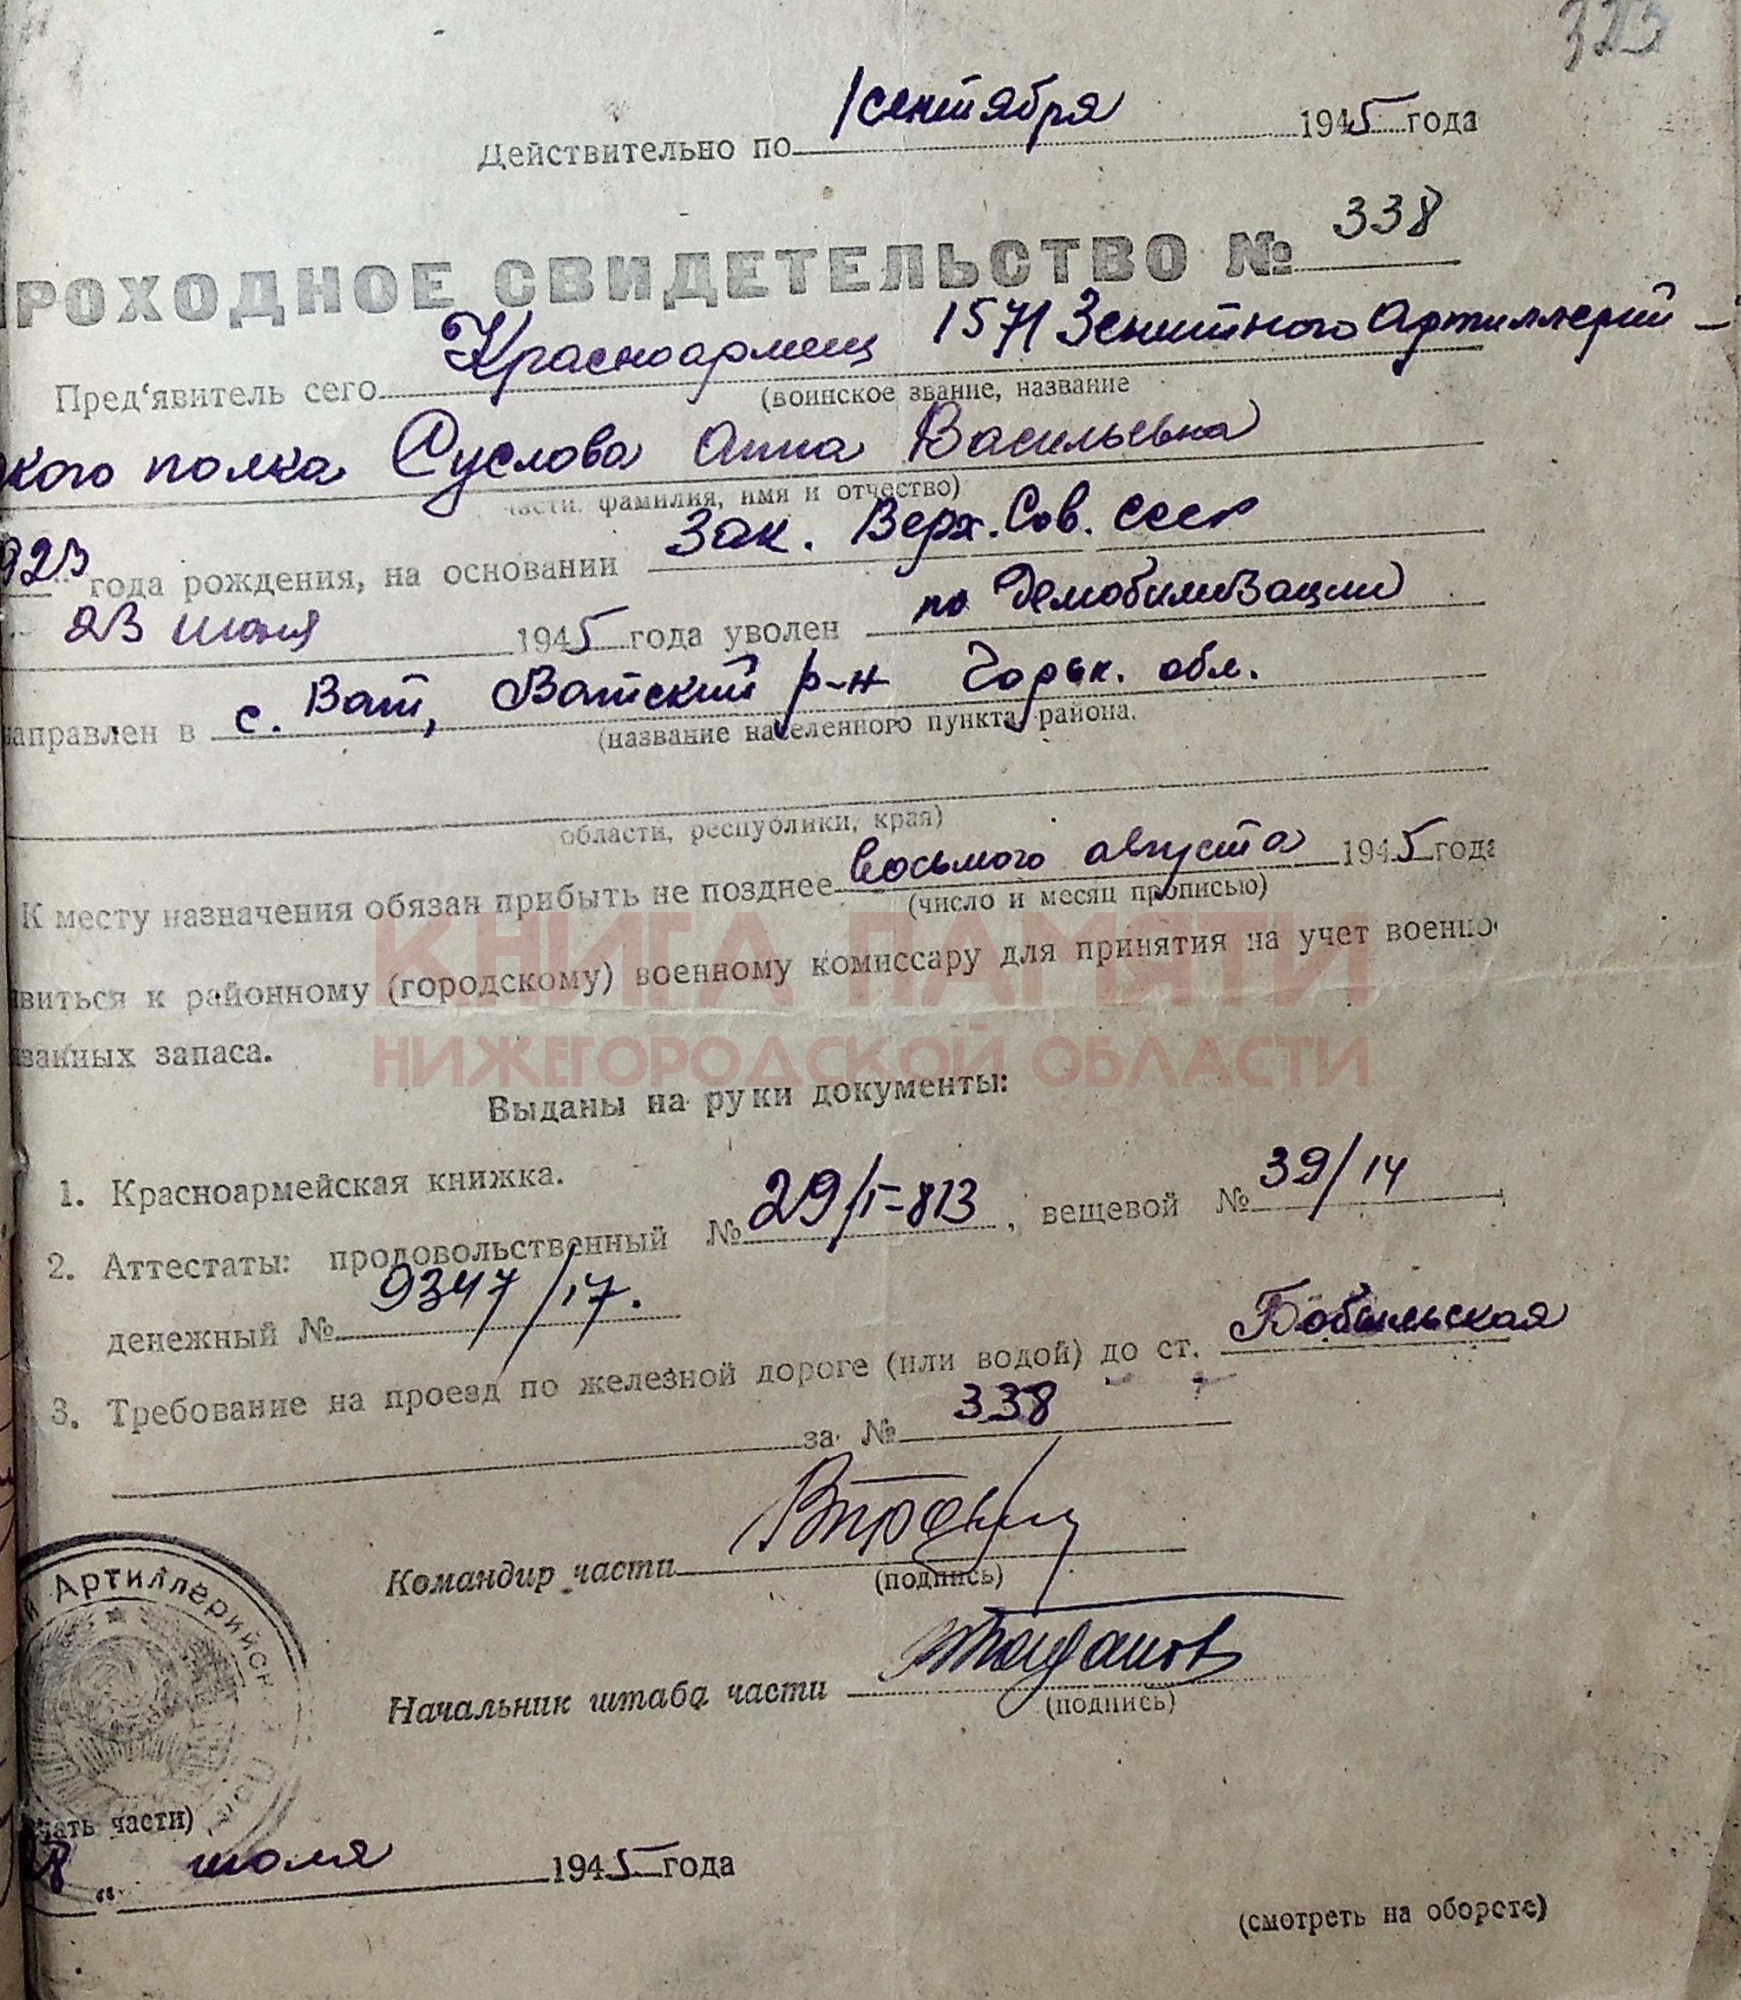 323
Действительно по 1 сентября 1945 года
РОХОДНОЕ СВИДЕТЕЛЬСТВО № 338
Пред'явитель сего Красноармеец 1571 Зенитного Артиллерий-
(воинское звание, название
кого полка Суслова Анна Васильевна
части, фамилия, имя и отчество)
923 года рождения, на основании Зак. Верх. Сов. СССР
23 июня 1945 года уволен по демобилизации
направлен в с. Ват, Ватский р-н Горьк. обл.
(название населенного пункта, района,
области, республики, края)
К месту назначения обязан прибыть не позднее восьмого августа 1945 года
(число и месяц прописью)
виться к районному (городскому) военному комиссару для принятия на учет военно-
занных запаса.
КНИГА ПАМЯТИ
НИЖЕГОРОДСКОЙ ОБЛАСТИ
Выданы на руки документы:
1. Красноармейская книжка.
2. Аттестаты: продовольственный № 29/1-813, вещевой № 39/14,
денежный № 9347/17.
3. Требование на проезд по железной дороге (или водой) до ст. Бобыльская
за № 338
Командир части
(подпись)
Начальник штаба части
(подпись)
Артиллерийск
чать части)
8 " июля 1945 года
(смотреть на обороте)